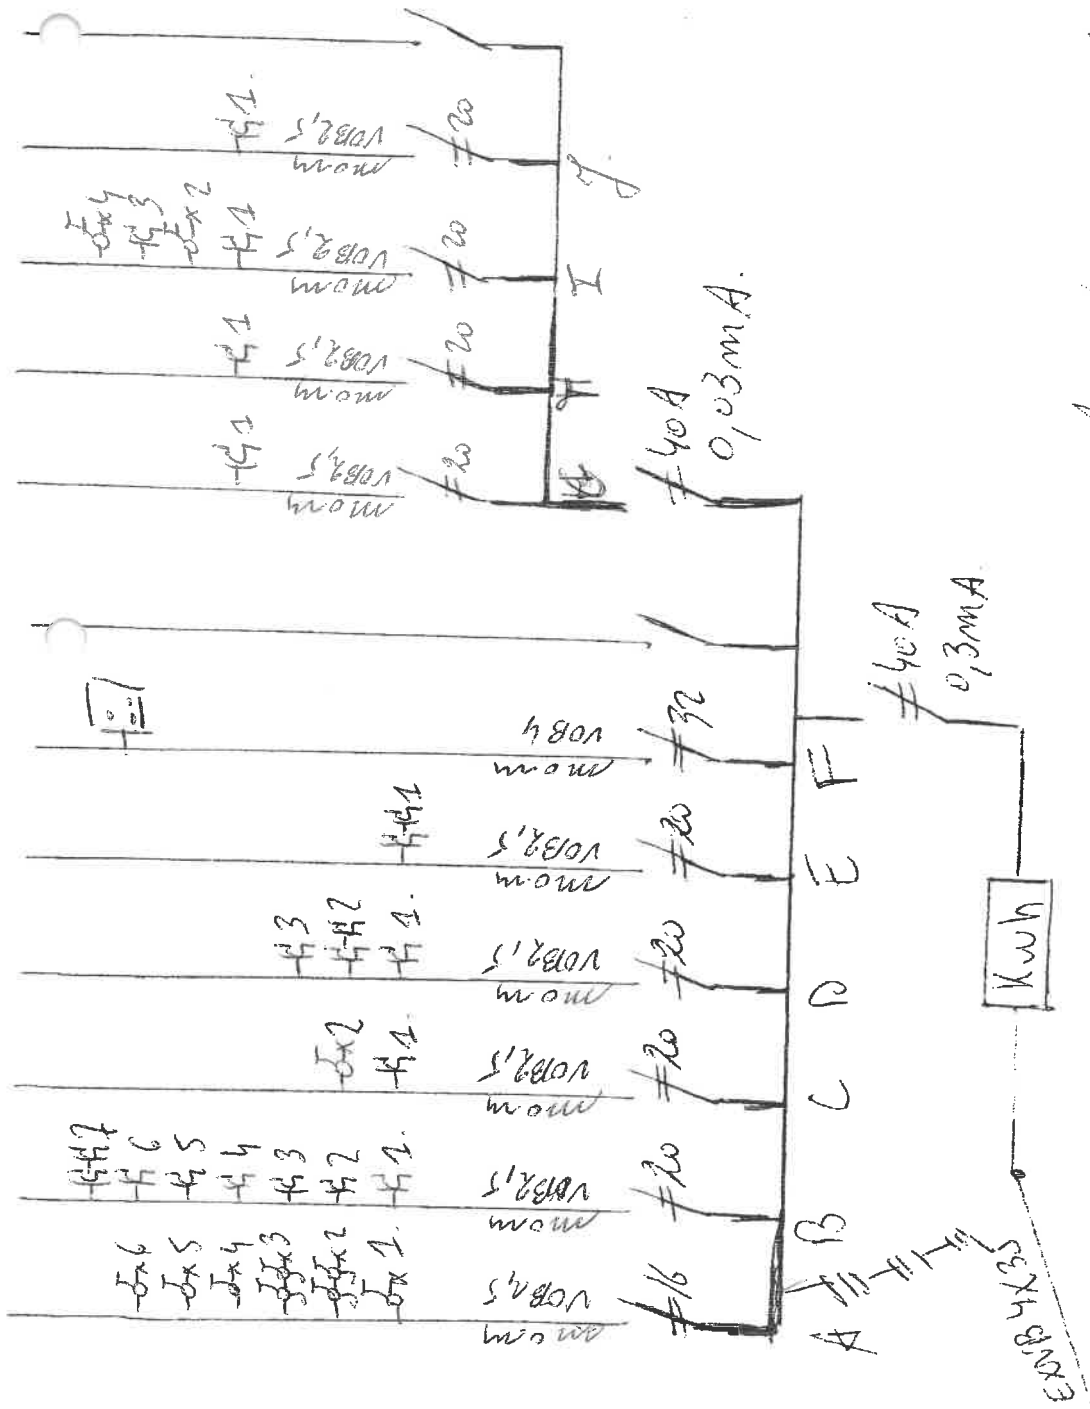 EXVB 4x35
Kwh
40A
0,3mA.
40A
0,03mA.
A
16
VOB1,5
x1.
x2
x3
x4
x5
x6
B
20
VOB2,5
1.
2
3
4
5
6
7
C
20
VOB2,5
1.
x2
D
20
VOB2,5
1.
2
3
E
20
VOB2,5
1
F
32
VOB4
20
VOB2,5
1
20
VOB2,5
1
I
20
VOB2,5
1
x2
3
x4
J
20
VOB2,5
1.